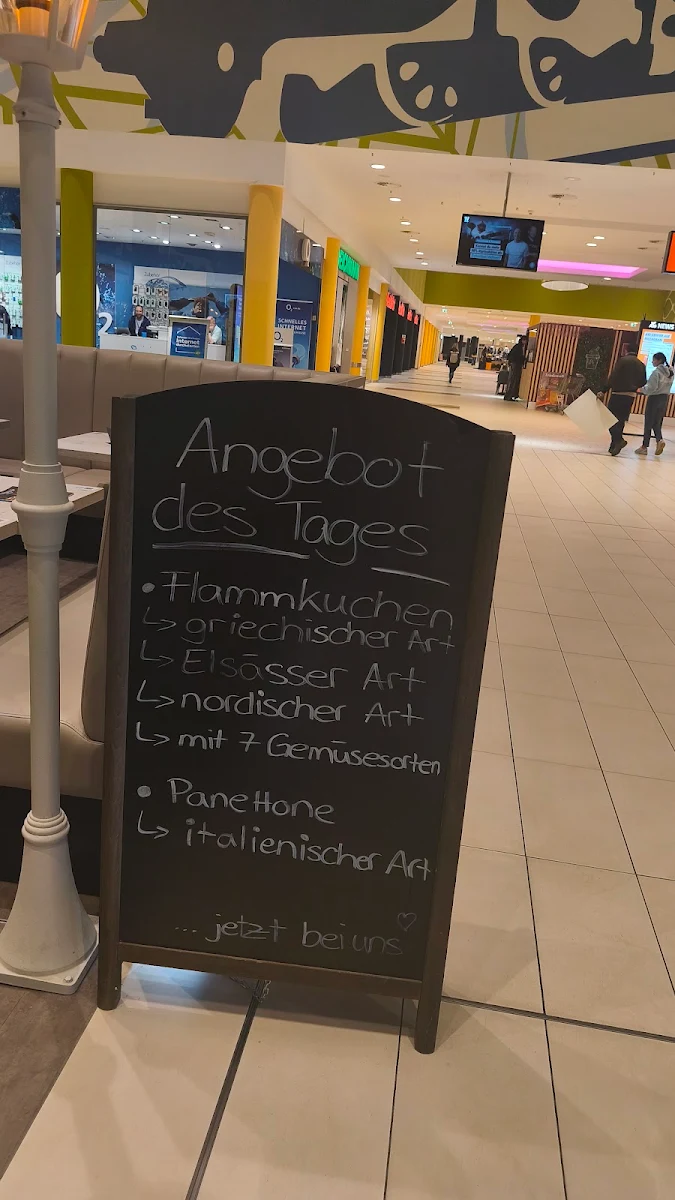 Angebot
des Tages
• Flammkuchen
↳ griechischer Art
↳ Elsässer Art
↳ nordischer Art
↳ mit 7 Gemüsesorten
• Panettone
↳ italienischer Art
... jetzt bei uns ♡
O2
SCHNELLES
INTERNET
NEWS